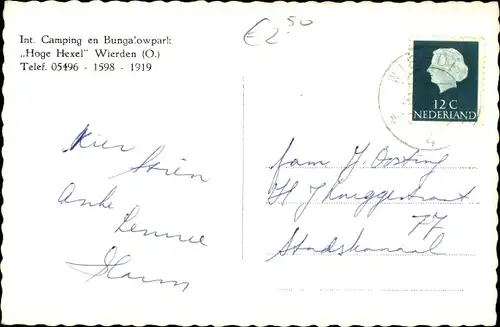 Int. Camping en Bungalowpark
„Hoge Hexel" Wierden (O.)
Telef. 05496 - 1598 - 1919
€2.50
12 C
NEDERLAND
4
Stien
Anke
Lennie
Harm
fam J. Oosting
77
Stadskanaal